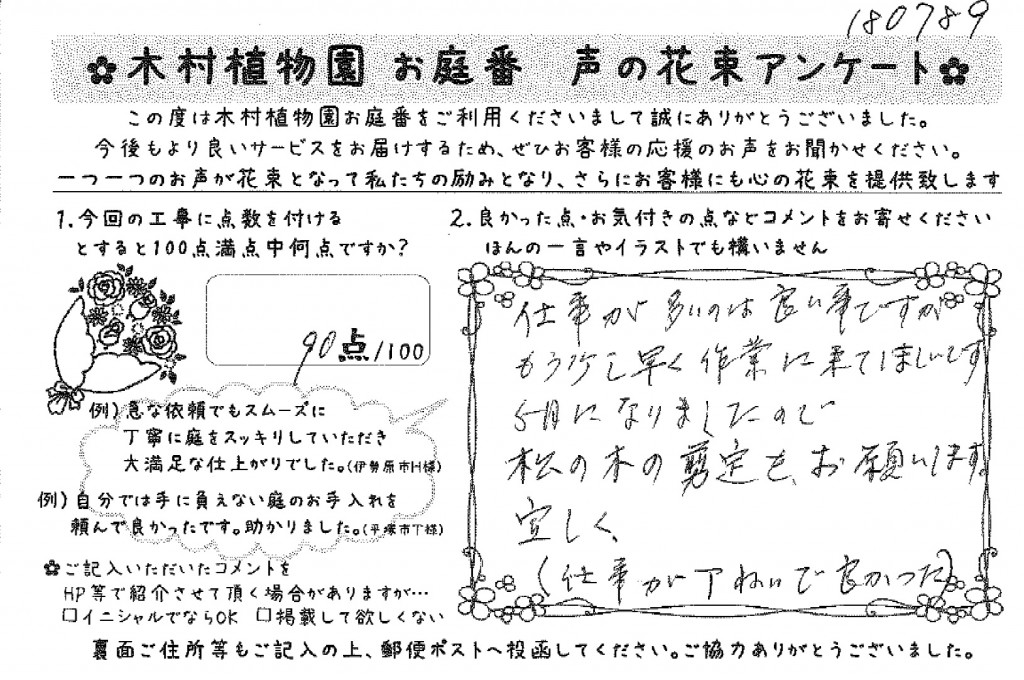 180789
✿木村植物園 お庭番 声の花束アンケート✿
この度は木村植物園お庭番をご利用くださいまして誠にありがとうございました。
今後もより良いサービスをお届けするため、ぜひお客様の応援のお声をお聞かせください。
一つ一つのお声が花束となって私たちの励みとなり、さらにお客様にも心の花束を提供致します
1.今回の工事に点数を付ける
とすると100点満点中何点ですか?
90点/100
例)急な依頼でもスムーズに
丁寧に庭をスッキリしていただき
大満足な仕上がりでした。(伊勢原市H様)
例)自分では手に負えない庭のお手入れを
頼んで良かったです。助かりました。(平塚市T様)
✿ご記入いただいたコメントを
HP等で紹介させて頂く場合がありますが…
□イニシャルでならOK □掲載して欲しくない
2.良かった点・お気付きの点などコメントをお寄せください
ほんの一言やイラストでも構いません
仕事が多いのは良い事ですが
もう少し早く作業に来てほしいです
5月になりましたので
松の木の剪定を、お願いします。
宜しく、
(仕事が丁ねいで良かった)
裏面ご住所等もご記入の上、郵便ポストへ投函してください。ご協力ありがとうございました。